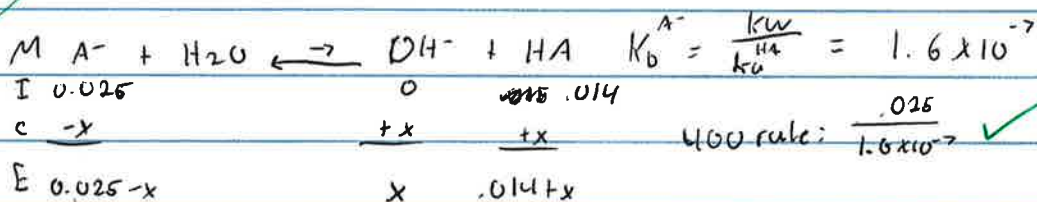 M A⁻ + H2O ⇌ OH⁻ + HA Kb^A⁻ = kw/ka^HA = 1.6 x 10⁻⁷
I 0.025 0 .014
C -x +x +x 400 rule: .025/1.6x10⁻⁷ ✓
E 0.025-x x .014+x